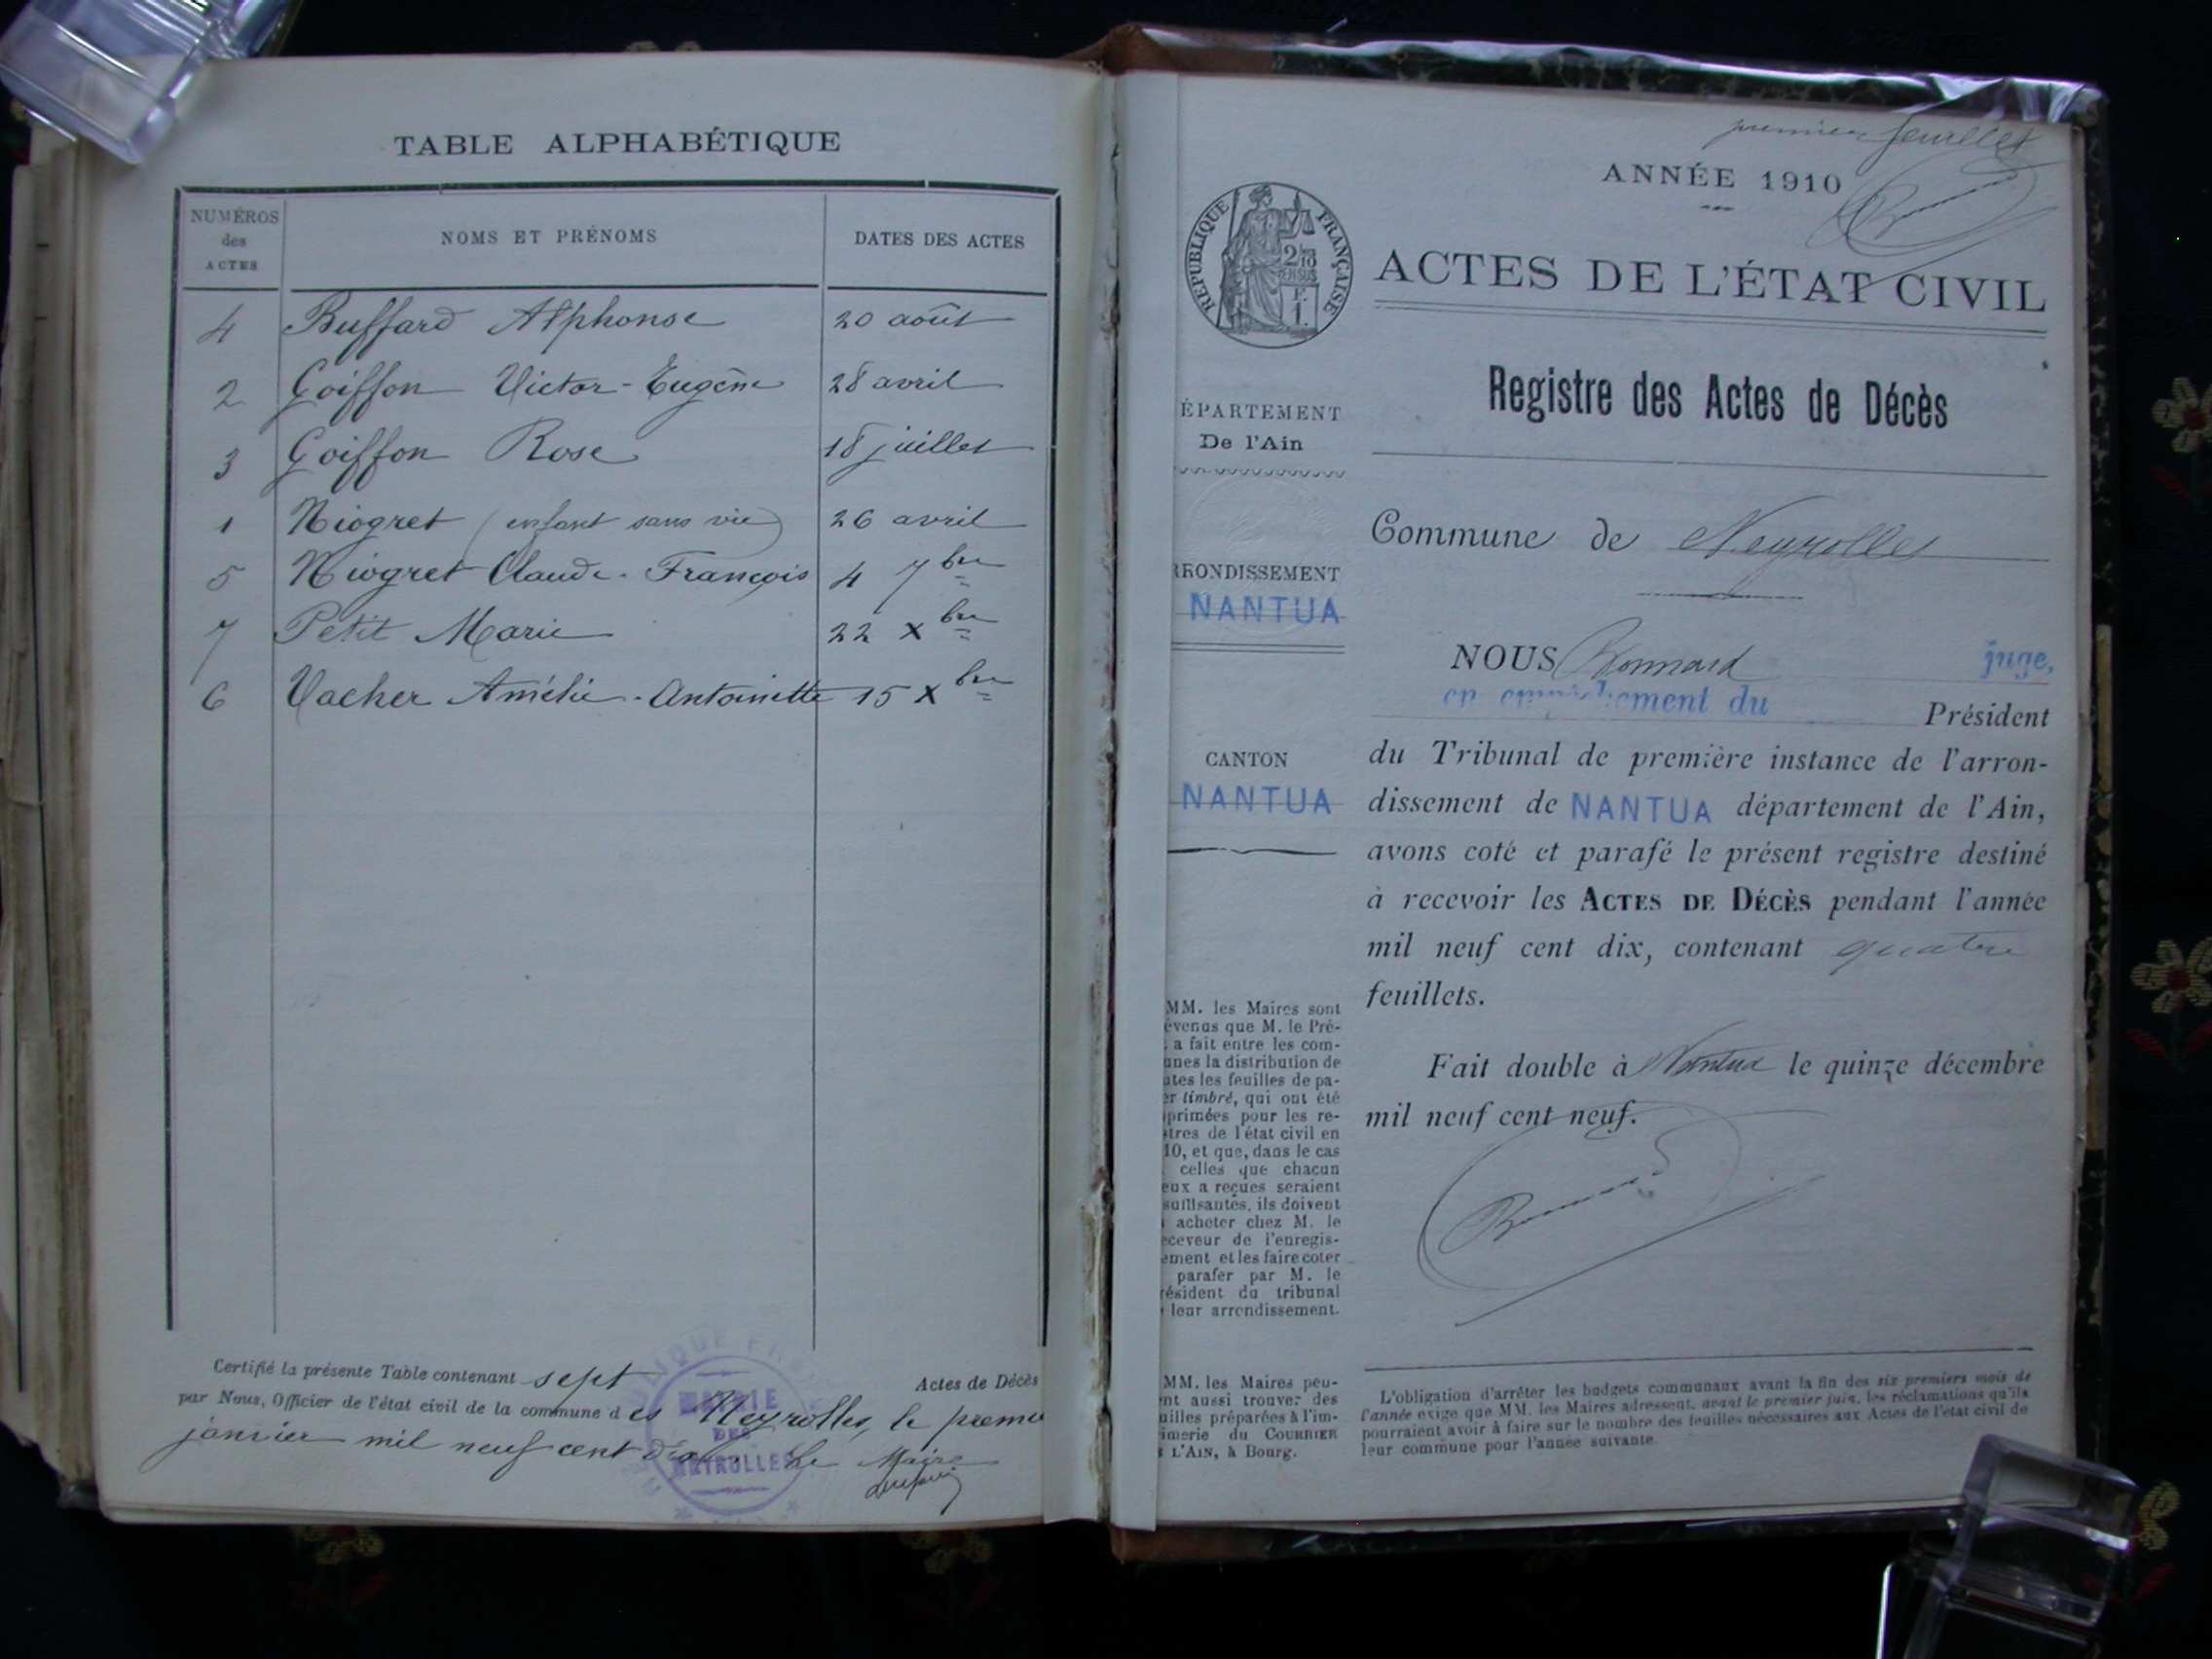 TABLE ALPHABÉTIQUE
NUMÉROS
des
ACTES
NOMS ET PRÉNOMS
DATES DES ACTES
4 Buffard Alphonse 20 août
2 Goiffon Victor-Eugène 28 avril
3 Goiffon Rose 18 juillet
1 Niogret (enfant sans vie) 26 avril
5 Niogret Claude-François 4 7bre
7 Petit Marie 22 xbre
6 Vacher Amélie-Antoinette 15 xbre
Certifié la présente Table contenant sept Actes de Décès
par Nous, Officier de l'état civil de la commune des Neyrolles, le premier
janvier mil neuf cent dix. Le Maire
MAIRIE
DES
NEYROLLES
premier feuillet
ANNÉE 1910
RÉPUBLIQUE FRANÇAISE
ACTES DE L'ÉTAT CIVIL
Registre des Actes de Décès
ÉPARTEMENT
De l'Ain
Commune de Neyrolles
RRONDISSEMENT
NANTUA
NOUS Bonnard juge,
en empêchement du
Président
CANTON
NANTUA
du Tribunal de première instance de l'arron-
dissement de NANTUA département de l'Ain,
avons coté et parafé le présent registre destiné
à recevoir les ACTES DE DÉCÈS pendant l'année
mil neuf cent dix, contenant quatre
feuillets.
Fait double à Nantua le quinze décembre
mil neuf cent neuf.
MM. les Maires sont
évenus que M. le Pré-
a fait entre les com-
unes la distribution de
utes les feuilles de pa-
er timbré, qui ont été
primées pour les re-
stres de l'état civil en
10, et que, dans le cas
celles que chacun
eux a reçues seraient
suffisantes, ils doivent
acheter chez M. le
eceveur de l'enregis-
ement et les faire coter
parafer par M. le
résident du tribunal
leur arrondissement.
MM. les Maires peu-
nt aussi trouver des
uilles préparées à l'im-
imerie du COURRIER
L'AIN, à Bourg.
L'obligation d'arrêter les budgets communaux avant la fin des six premiers mois de
l'année exige que MM. les Maires adressent, avant le premier juin, les réclamations qu'ils
pourraient avoir à faire sur le nombre des feuilles nécessaires aux Actes de l'état civil de
leur commune pour l'année suivante.